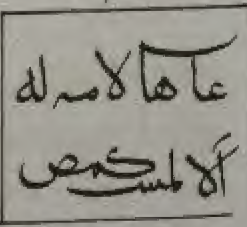 عا ها لا مه له
ألا لمس كمص